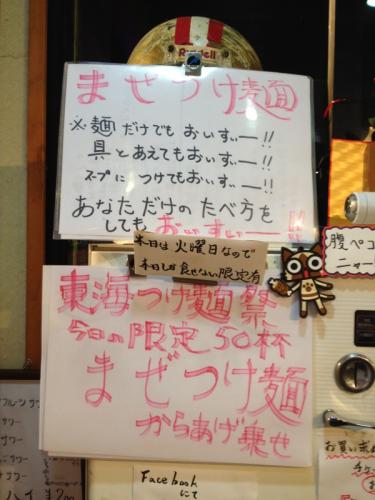 Riddell
まぜつけ麺
※麺だけでもおいすぃー!!
具とあえてもおいすぃー!!
スープにつけてもおいすぃー!!
あなただけのたべ方を
してもおいすぃー!!
本日は火曜日なので
本日しか食せない限定有
腹ペコ
ニャー
東海つけ麺祭
今日の限定50杯
まぜつけ麺
からあげ乗せ
お買い求め
Facebook
にて